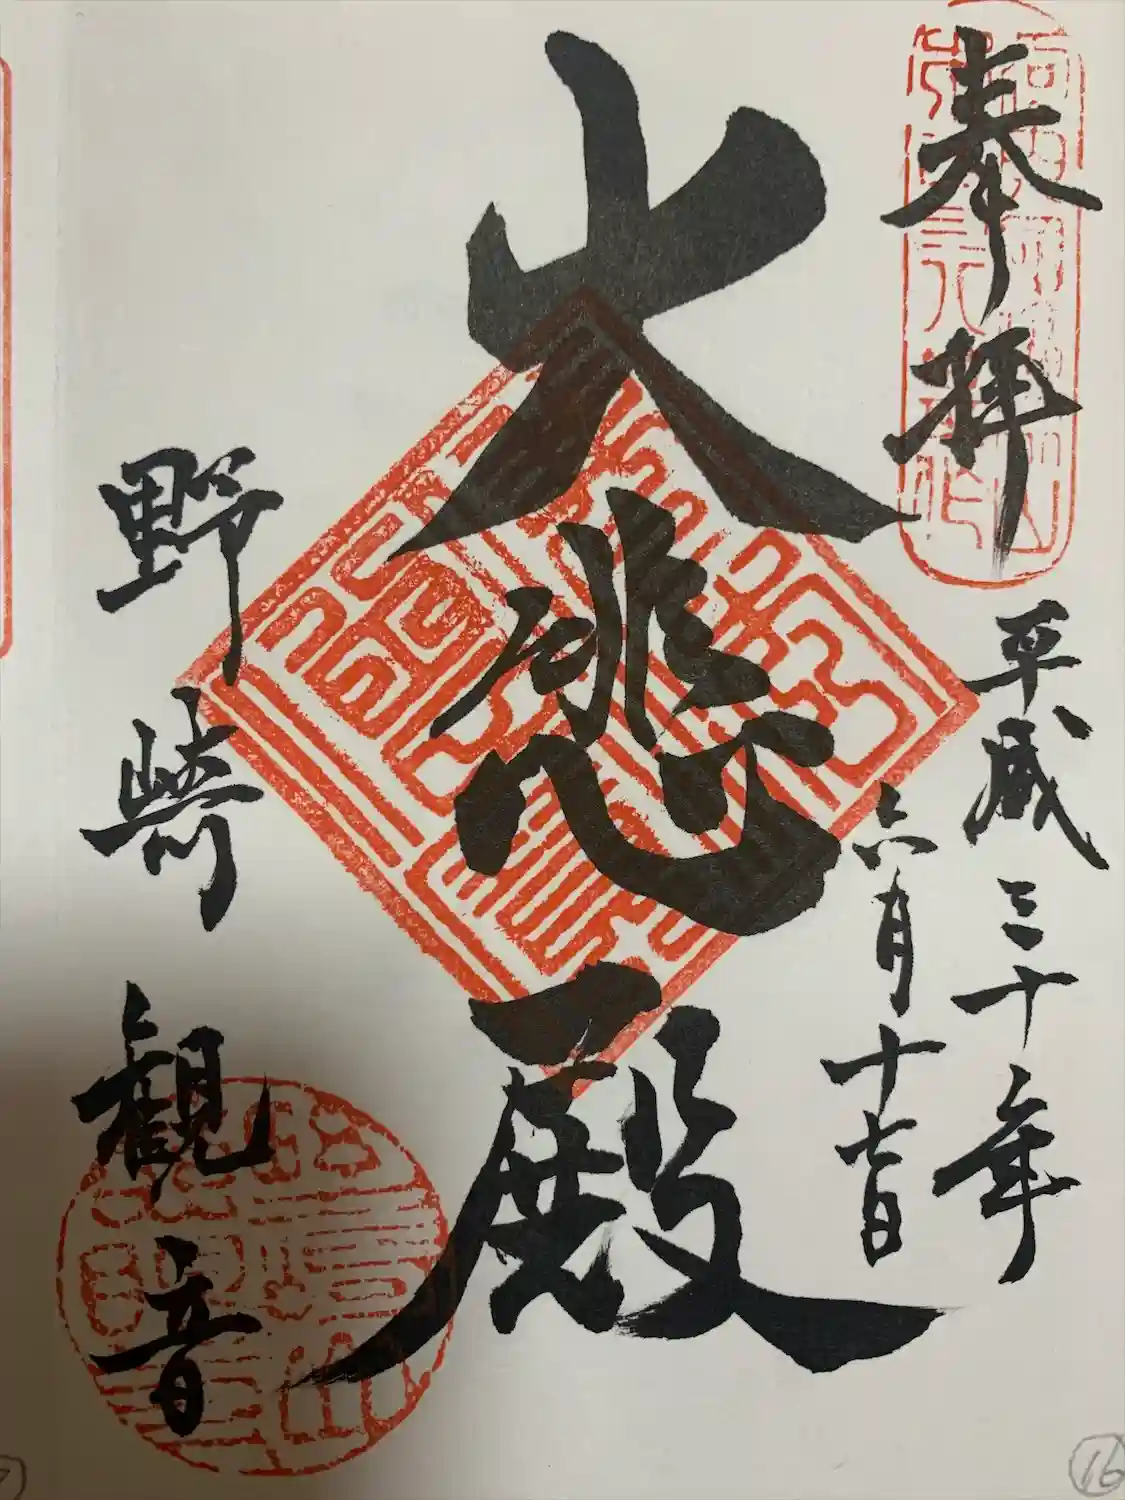 奉拝
平成三十年
六月十七日
大悲殿
野崎観音
16